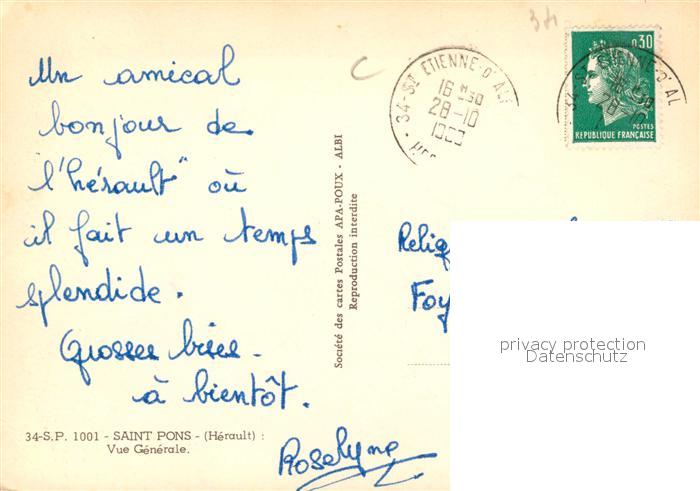 Un amical
bonjour de
l'hérault" où
il fait un temps
splendide.
Grosses bises -
à bientôt.
Roselyne
34-S.P. 1001 - SAINT PONS - (Hérault) :
Vue Générale.
Société des cartes Postales APA-POUX - ALBI
Reproduction interdite
34
34-St ETIENNE-D'AL
16 H 30
28-10
0,30
POSTES
REPUBLIQUE FRANÇAISE
34-St ETIENNE-D'AL
16 H 30
28-10
Relig
Foy
privacy protection
Datenschutz